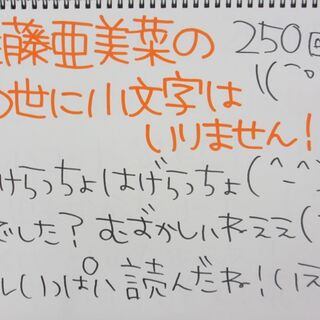 藤亜美菜の
250回
\(^o
の世に小文字は
いりません!
げらっちょはげらっちょ(^-^)
でした?むずかしいねええ(
いっぱい読んだね!(いえ